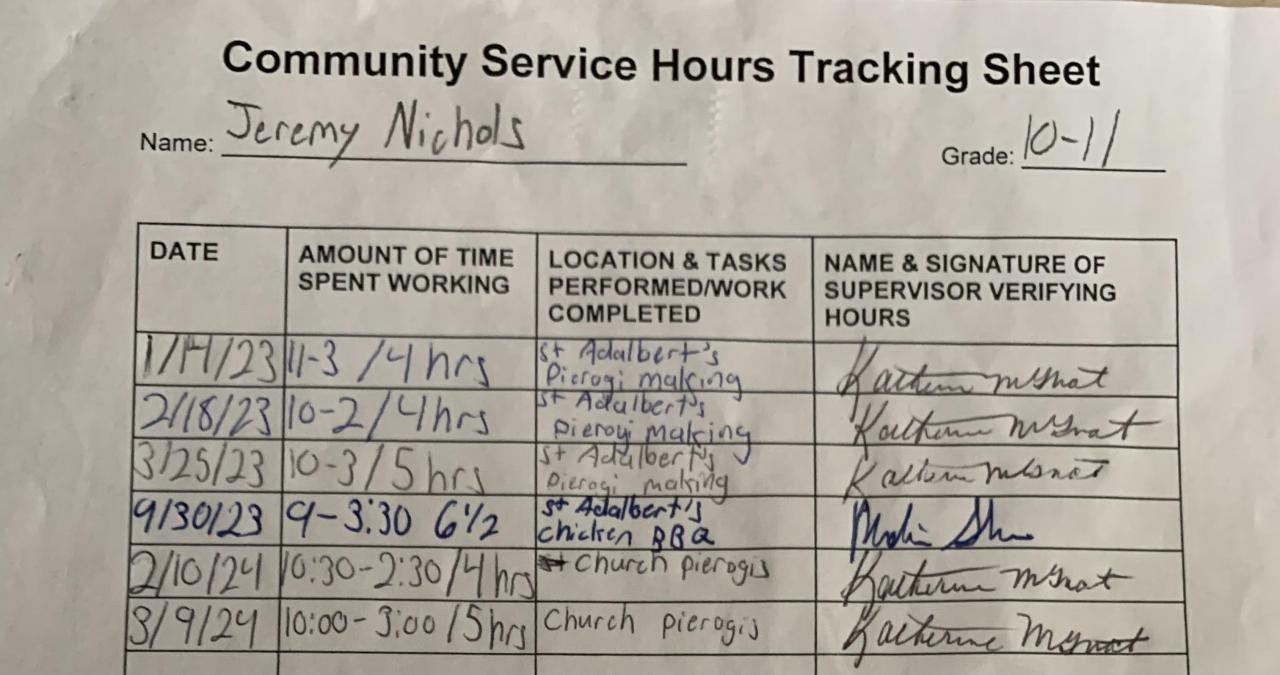 Community Service Hours Tracking Sheet
Name: Jeremy Nichols
Grade: 10-11
DATE
AMOUNT OF TIME
SPENT WORKING
LOCATION & TASKS
PERFORMED/WORK
COMPLETED
NAME & SIGNATURE OF
SUPERVISOR VERIFYING
HOURS
1/14/23 11-3 /4 hrs St Adalbert's
Pierogi making
Katherine
2/18/23 10-2/4hrs St Adalbert's
Pierogi making
Katherine
3/25/23 10-3/5 hrs St Adalbert's
Pierogi making
Katherine
9/30/23 9-3:30 6 1/2 St Adalbert's
chicken BBQ
2/10/24 10:30-2:30/4 hrs Church pierogis
Katherine
3/9/24 10:00-3:00/5hrs Church pierogis
Katherine